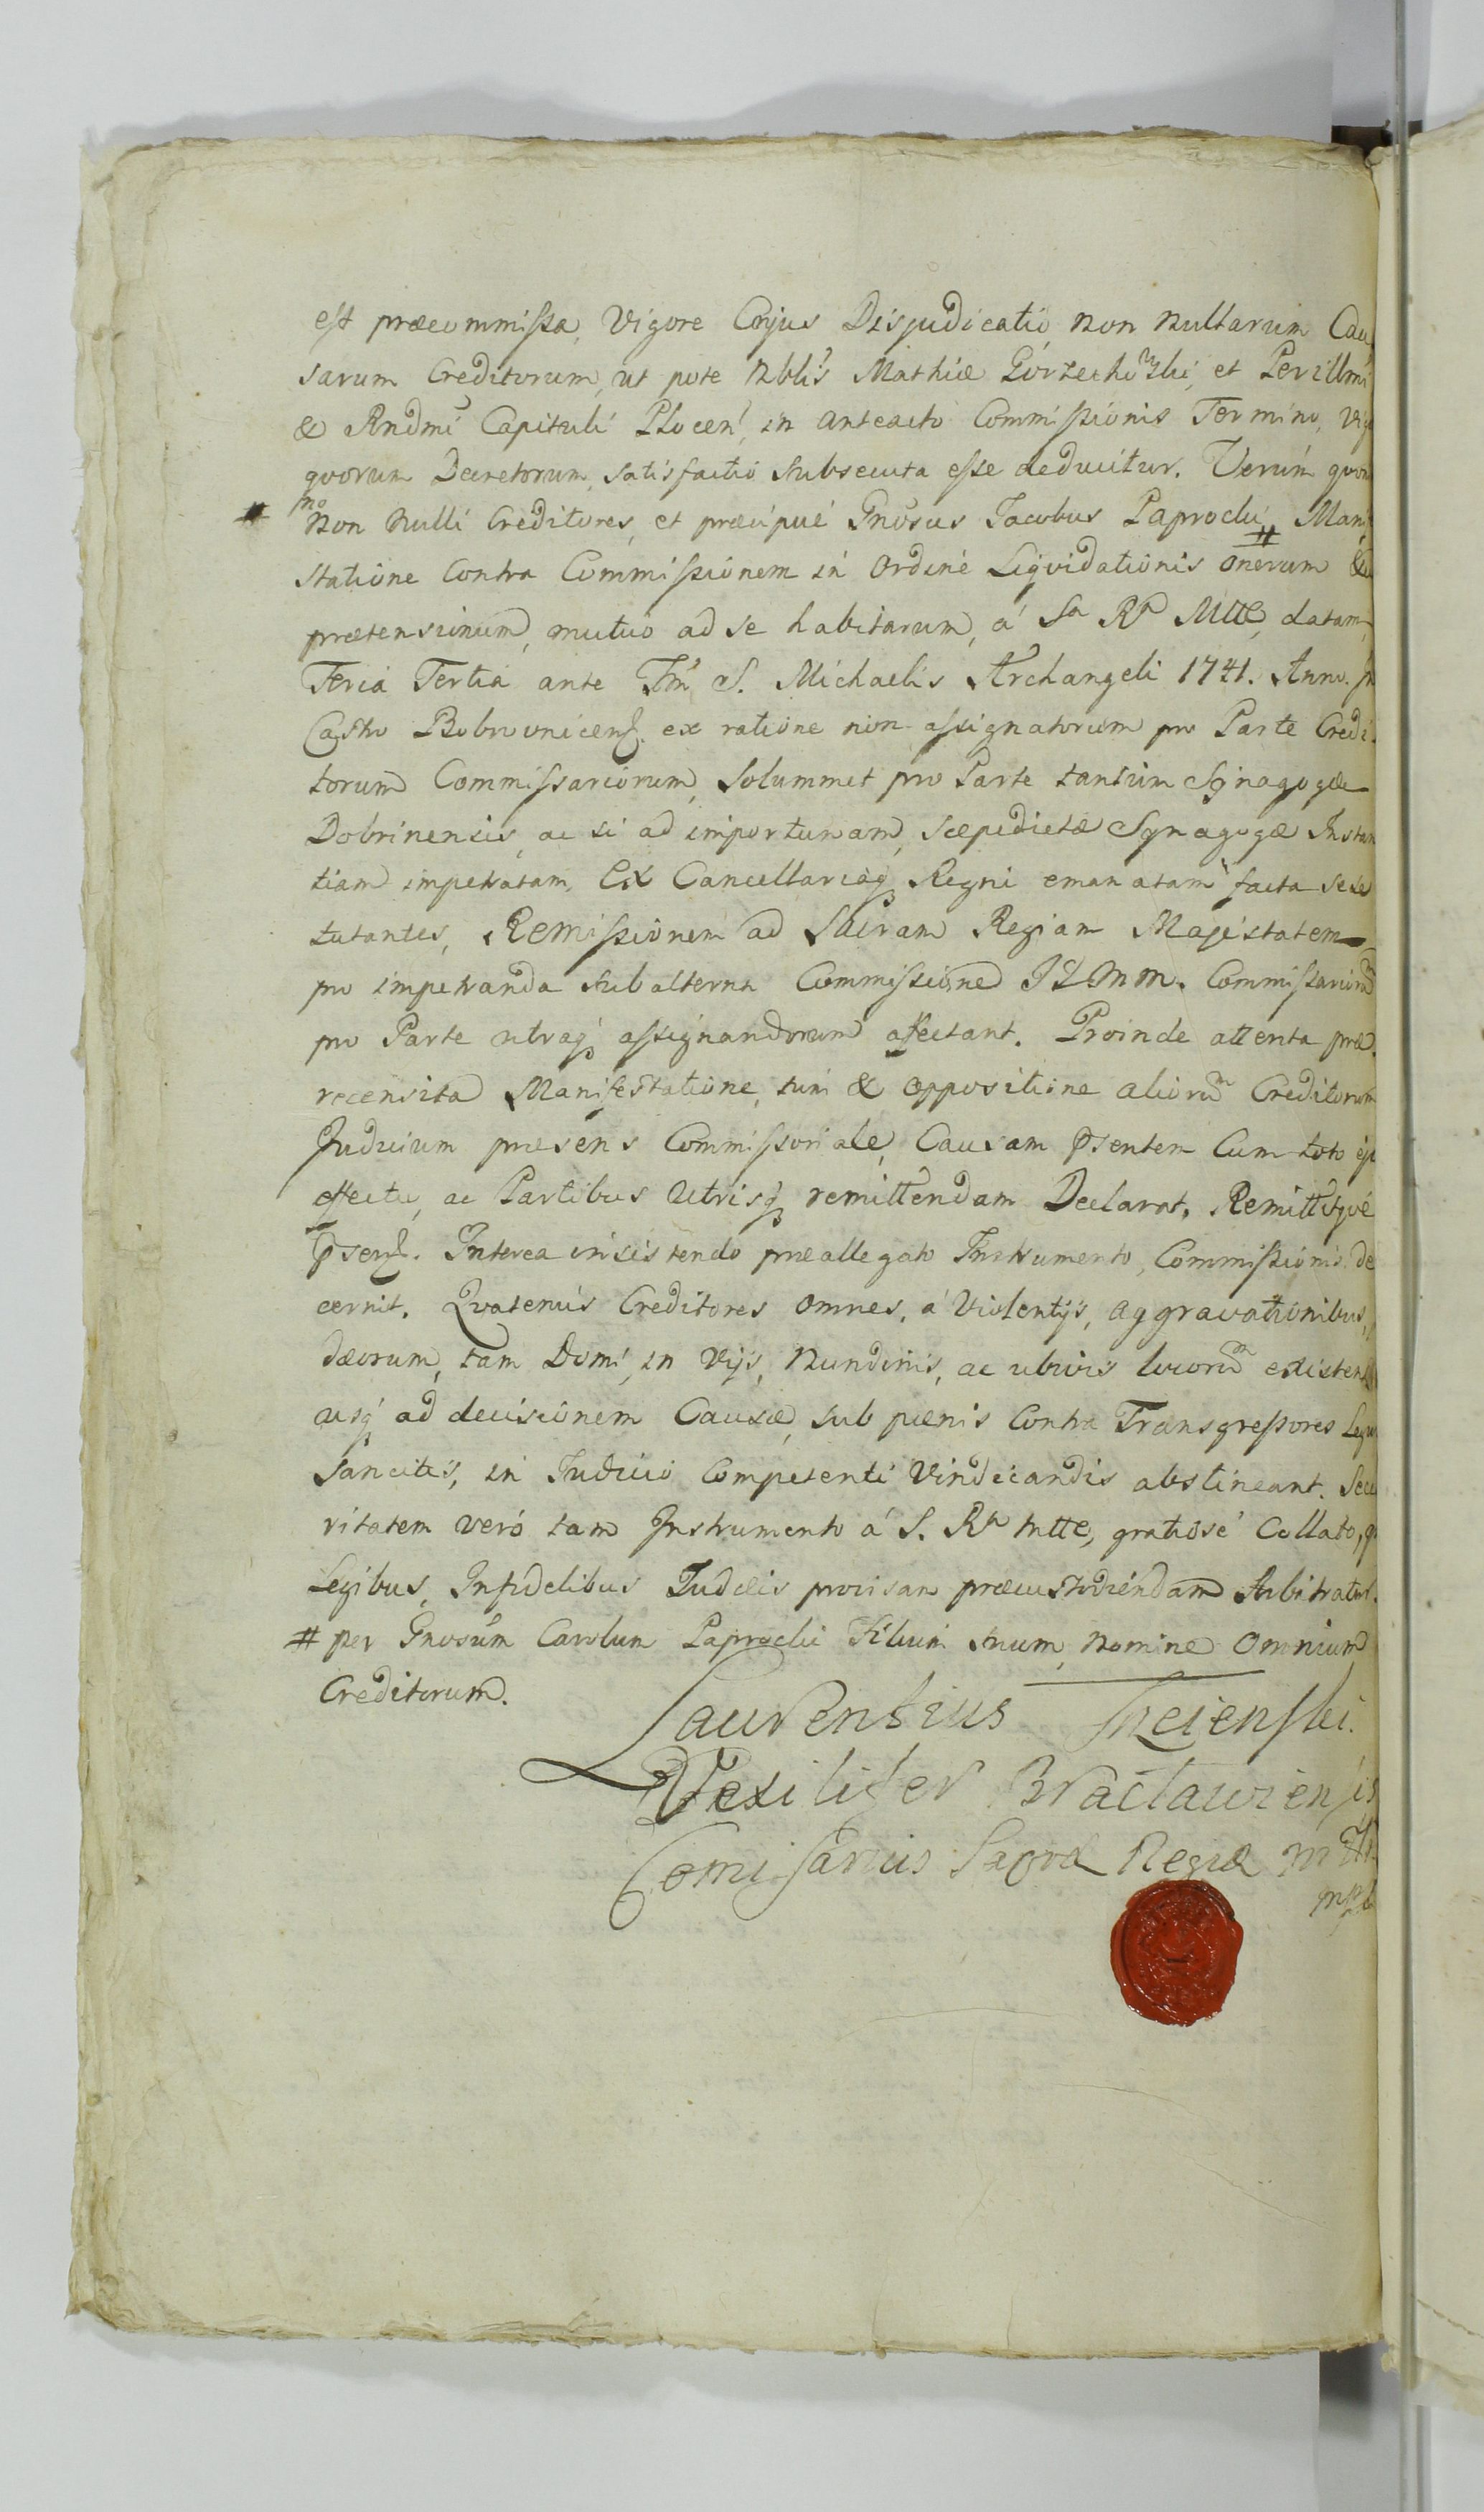 est præcommissa, Vigore Cujus Disjudicatio non nullarum Cau
sarum Creditorum, ut pote Nblis Mathiæ Górzechowski, et Perillmi
& Rndmi Capituli Plocen, in anteacto Commissionis Termino, Vig
qvorum Decretorum, satisfactio subsecuta esse deducitur. Verùm qvon
# mo non nulli Creditores, et præcipuè Gnosus Jacobus Paprocki, # Mani
statione contra Commissionem in ordine Liqvidationis onerum &
prætensionum, mutuo ad se habitarum, á Sa Ra Mtte, datam,
Feria Tertia ante Fm S. Michaelis Archangeli 1741. Anno. In
Castro Bobrovnicens. ex ratione non assignatorum pro Parte Credi
torum Commissariorum, solummet pro Parte tantùm Synagogæ
Dobrinensis, ac si ad importunam, sæpedictæ Synagogæ Instan
tiam impetratam, Ex Cancellariaq Regni emanatam facta sese
tutantes, Remissionem ad Sacram Regiam Majestatem
pro impetranda subalterna Commissione IllMM. Commissariorum
pro Parte utraq assignandorum affectant. Proinde attenta præ
recensita Manifestatione, tum & oppositione aliorum Creditorum
Judicium præsens Commissoriale, Causam psentem Cum toto ejus
effectu, ac Partibus Utrisq remittendam Declarat. Remittitqvè
psens. Interea insistendo præallegato Instrumento, Commissionis de
cernit. Qvatenùs Creditores omnes, á Violentijs, aggravationibus,
dæorum, tam Domi, in Vijs, Nundinis, ac ubivis locorum existen
usq ad decisionem Causæ, sub pænis Contra Transgressores Legum
Sancitis, in Judicio Competenti Vindicandis abstineant. Secu
ritatem verò tam Instrumento á S. Ra Mtte, gratiosè Collato, q
Legibus, Infidelibus Judæis provisam præcustodiendam Arbitratur.
# per Gnosum Carolum Paprocki Filium suum, nomine omnium
Creditorum.
Laurentius
Vexilifer Bracławiensis
Comisarius Sacræ Regiæ Mttis
mpp